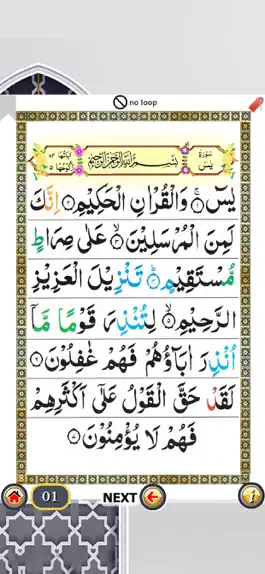 no loop
سُورَةُ يٰسٓ
بِسْمِ اللّٰهِ الرَّحْمٰنِ الرَّحِيْمِ
اٰيَاتُهَا ٨٣
رُكُوْعُهَا ٥
يٰسٓ ۚ‏﴿١﴾ وَالْقُرْاٰنِ الْحَكِيْمِ ﴿٢﴾ اِنَّكَ
لَمِنَ الْمُرْسَلِيْنَ ﴿٣﴾ عَلٰى صِرَاطٍ
مُّسْتَقِيْمٍ ﴿٤﴾ تَنْزِيْلَ الْعَزِيْزِ
الرَّحِيْمِ ﴿٥﴾ لِتُنْذِرَ قَوْمًا مَّآ
اُنْذِرَ اٰبَآؤُهُمْ فَهُمْ غٰفِلُوْنَ ﴿٦﴾
لَقَدْ حَقَّ الْقَوْلُ عَلٰٓى اَكْثَرِهِمْ
فَهُمْ لَا يُؤْمِنُوْنَ ﴿٧﴾
01
NEXT
i